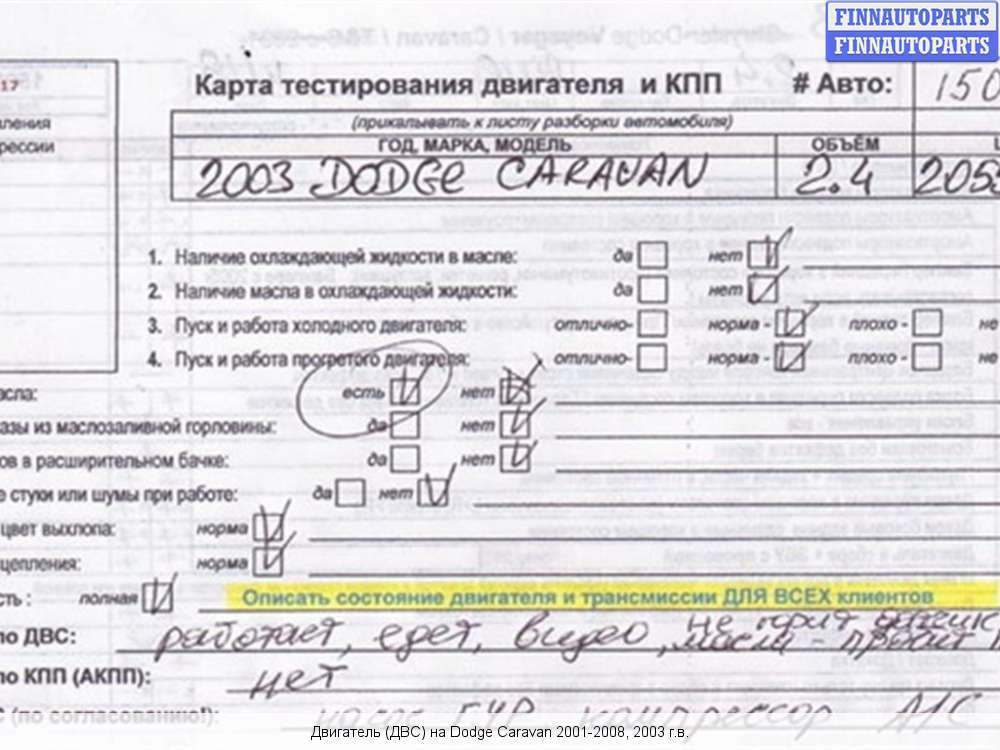 FINNAUTOPARTS
FINNAUTOPARTS
17
Карта тестирования двигателя и КПП # Авто: 150
(прикалывать к листу разборки автомобиля)
ГОД, МАРКА, МОДЕЛЬ ОБЪЁМ
2003 DODGE CARAVAN 2.4 205
1. Наличие охлаждающей жидкости в масле: да нет
2. Наличие масла в охлаждающей жидкости: да нет
3. Пуск и работа холодного двигателя: отлично- норма - плохо - не
4. Пуск и работа прогретого двигателя: отлично- норма - плохо - не
асла: есть нет
азы из маслозаливной горловины: да нет
ов в расширительном бачке: да нет
е стуки или шумы при работе: да нет
цвет выхлопа: норма
цепления: норма
сть : полная Описать состояние двигателя и трансмиссии ДЛЯ ВСЕХ клиентов
по ДВС: работает, едет, видео, не горит
масла -
по КПП (АКПП): нет
С (по согласованию!): насос ГУР, компрессор A/C
Двигатель (ДВС) на Dodge Caravan 2001-2008, 2003 г.в.